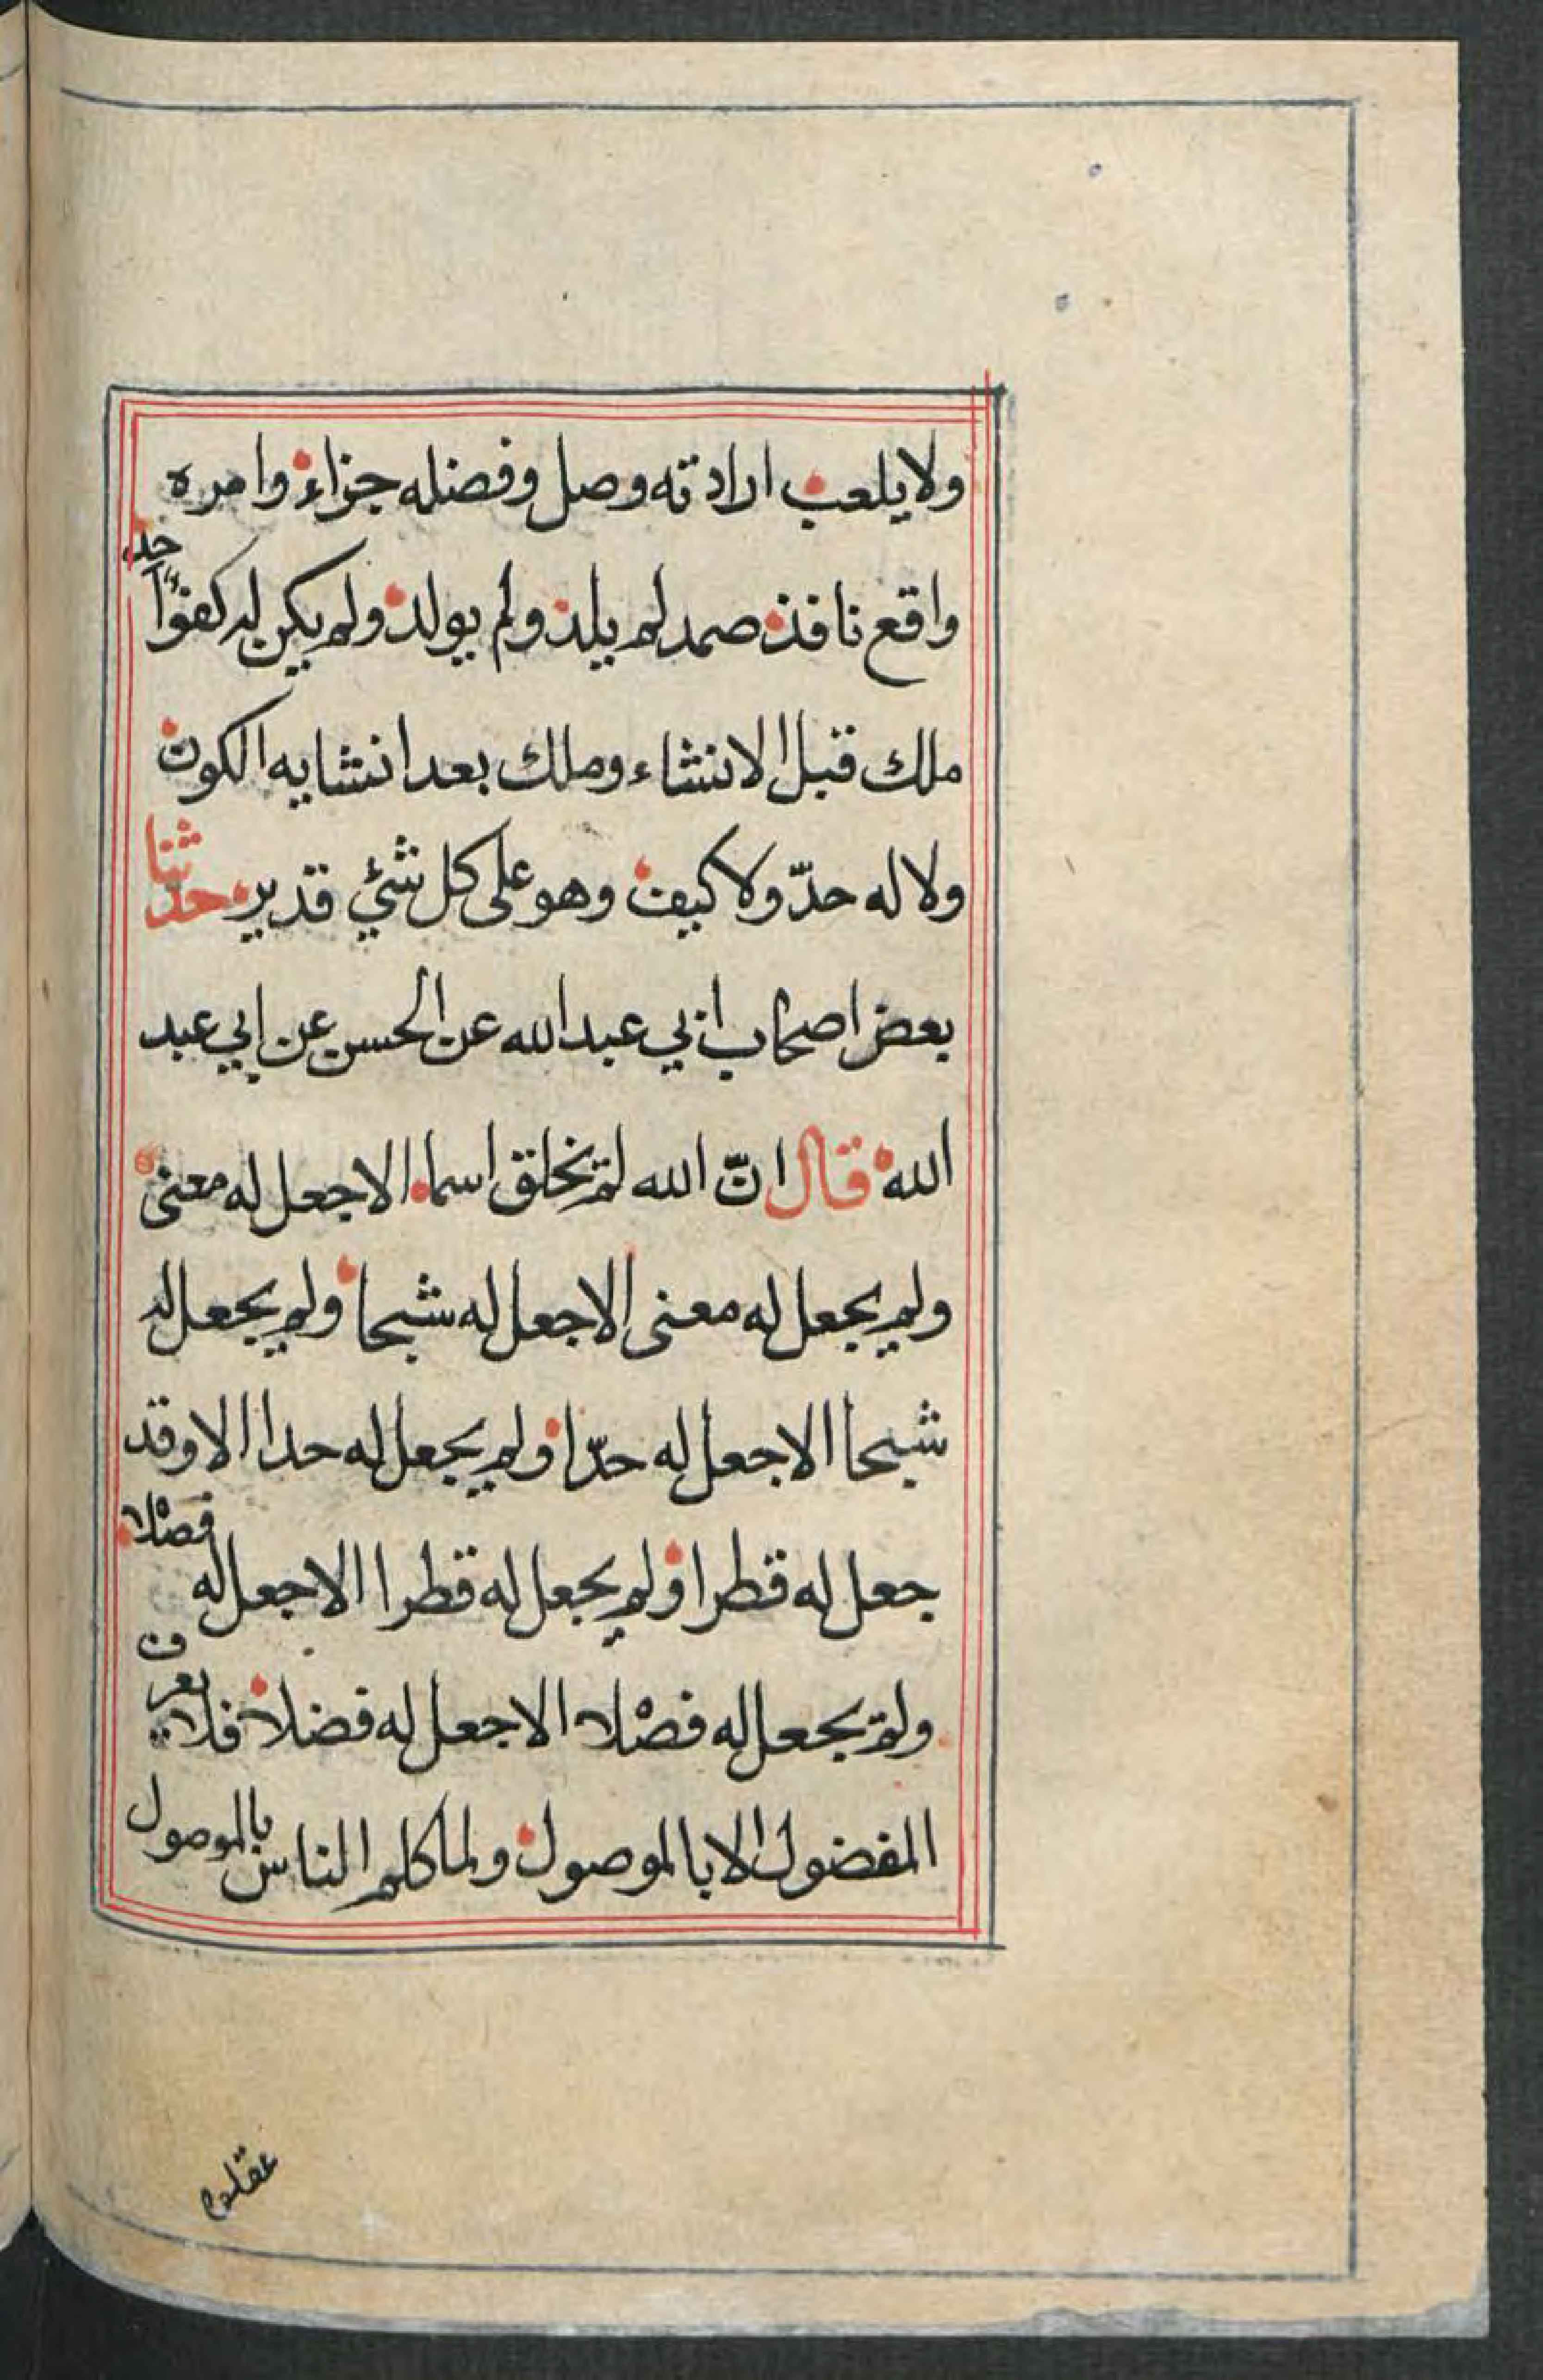 ولا يلعب ارادته وصل وفضله جزاء وامره
واقع نافذ صمد لم يلد ولم يولد ولم يكن له كفوًا احد
ملك قبل الانشاء وملك بعد انشايه الكون
ولا له حدّ ولا كيف وهو على كل شئ قدير حدثنا
بعض اصحاب ابي عبد الله عن الحسن عن ابي عبد
الله قال انّ الله لم يخلق اسما الا جعل له معنى
ولم يجعل له معنى الا جعل له شبحا ولم يجعل له
شبحا الا جعل له حدّا ولم يجعل له حدا الا وقد
جعل له قطرا ولم يجعل له قطرا الا جعل له فصلا
ولم يجعل له فصلا الا جعل له فضلا فلا يعرف
المفضول الا بالموصول ولما كلم الناس بالموصول